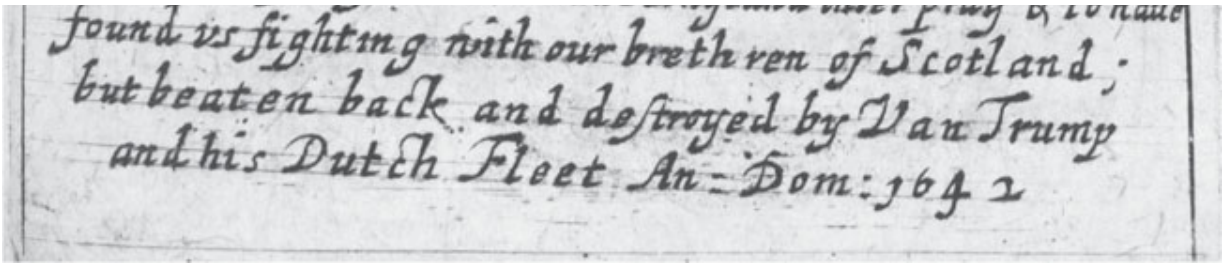 pray & to haue
found vs fighting with our brethren of Scotland;
but beaten back and deſtroyed by Van Trump
and his Dutch Fleet An: Dom: 1642